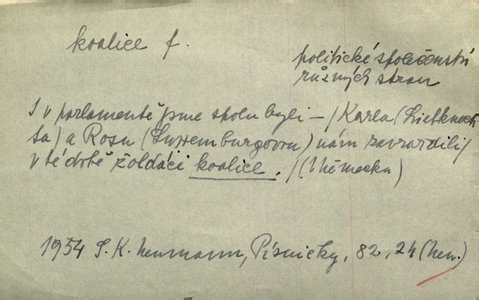 koalice f.
politické společenství
různých stran
I v parlamentě jsme spolu byli – /Karla (Liebknech-
ta) a Rosu (Luxemburgovou) nám zavraždili/
v té době žoldáci koalice. / (v Německu)
1954 S. K. Neumann, Písničky, 82, 24 (Nem.)